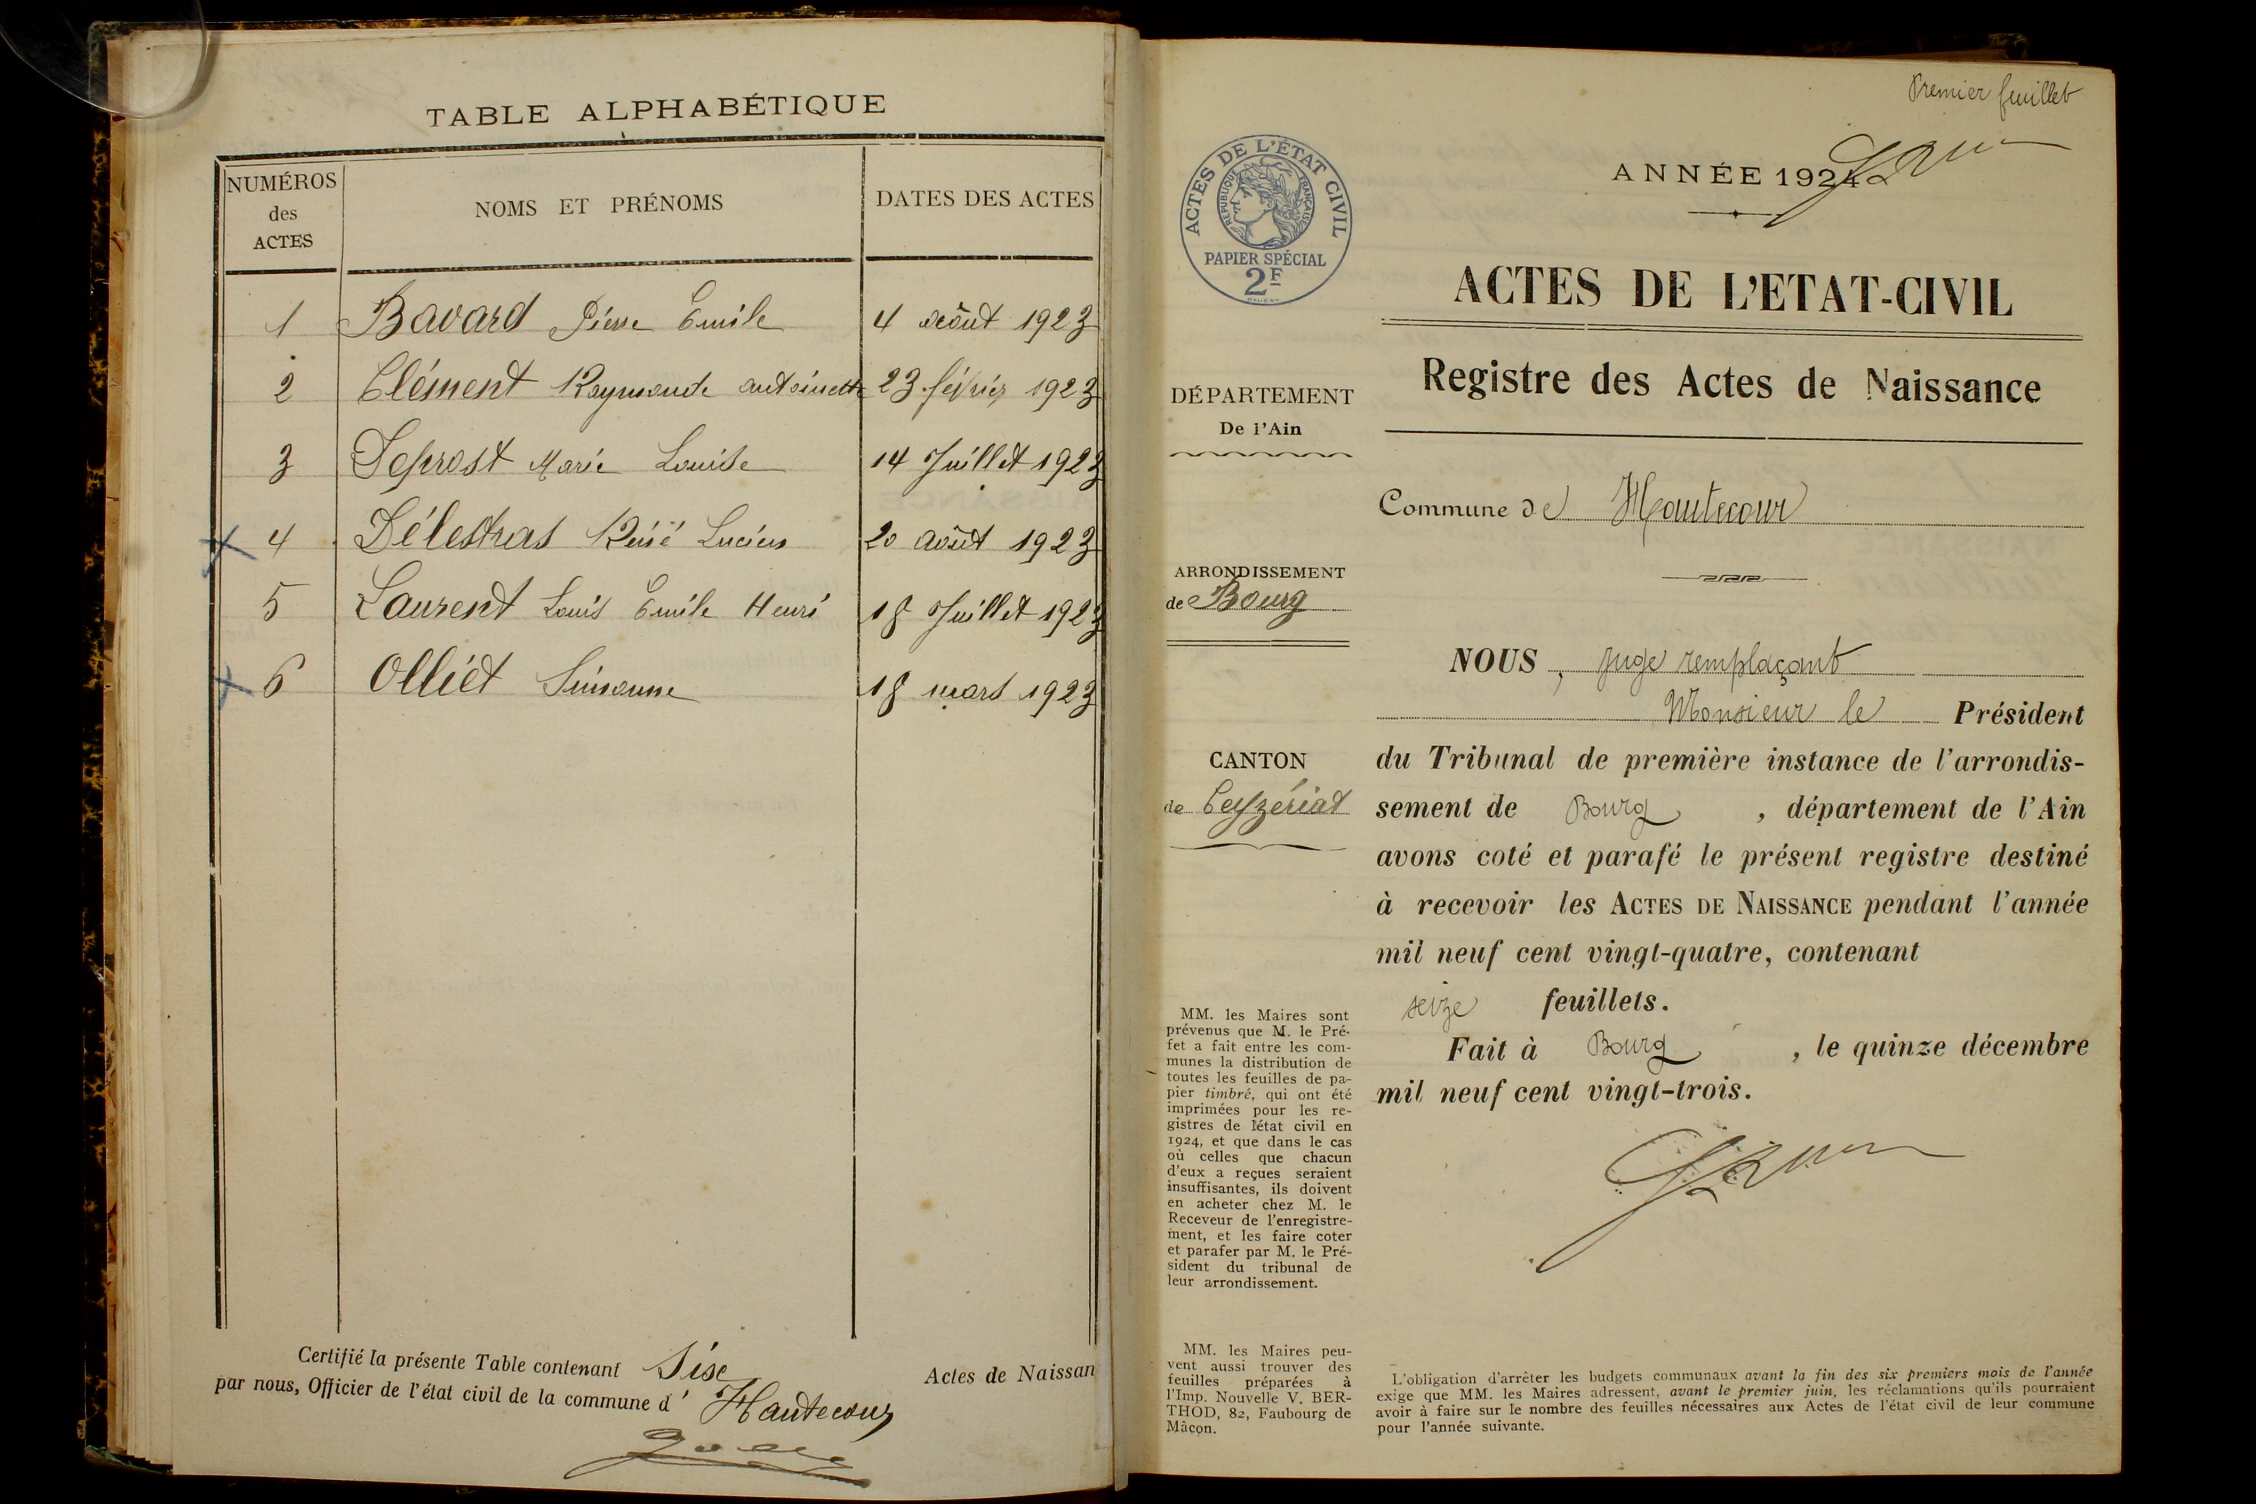 TABLE ALPHABÉTIQUE
NUMÉROS des ACTES
NOMS ET PRÉNOMS
DATES DES ACTES
1 Bavard Pierre Emile 4 août 1923
2 Clément Raymonde antoinette 23 février 1923
3 Deprost Marie Louise 14 Juillet 1923
4 Délestras Réné Lucien 20 août 1923
5 Laurent Louis Emile Henri 18 Juillet 1923
6 Olliet Simonne 18 mars 1923
Certifié la présente Table contenant Sise Actes de Naissan
par nous, Officier de l'état civil de la commune d' Hautecour
Premier feuillet
ACTES DE L'ÉTAT CIVIL
RÉPUBLIQUE FRANÇAISE
PAPIER SPÉCIAL
2F
ANNÉE 1924
ACTES DE L'ETAT-CIVIL
Registre des Actes de Naissance
DÉPARTEMENT
De l'Ain
Commune de Hautecour
ARRONDISSEMENT
de Bourg
CANTON
de Ceyzériat
NOUS, Juge remplaçant
Monsieur le Président
du Tribunal de première instance de l'arrondis-
sement de Bourg, département de l'Ain
avons coté et parafé le présent registre destiné
à recevoir les ACTES DE NAISSANCE pendant l'année
mil neuf cent vingt-quatre, contenant
seize feuillets.
Fait à Bourg, le quinze décembre
mil neuf cent vingt-trois.
MM. les Maires sont
prévenus que M. le Pré-
fet a fait entre les com-
munes la distribution de
toutes les feuilles de pa-
pier timbré, qui ont été
imprimées pour les re-
gistres de l'état civil en
1924, et que dans le cas
où celles que chacun
d'eux a reçues seraient
insuffisantes, ils doivent
en acheter chez M. le
Receveur de l'enregistre-
ment, et les faire coter
et parafer par M. le Pré-
sident du tribunal de
leur arrondissement.
MM. les Maires peu-
vent aussi trouver des
feuilles préparées à
l'Imp. Nouvelle V. BER-
THOD, 82, Faubourg de
Mâcon.
L'obligation d'arrêter les budgets communaux avant la fin des six premiers mois de l'année
exige que MM. les Maires adressent, avant le premier juin, les réclamations qu'ils pourraient
avoir à faire sur le nombre des feuilles nécessaires aux Actes de l'état civil de leur commune
pour l'année suivante.